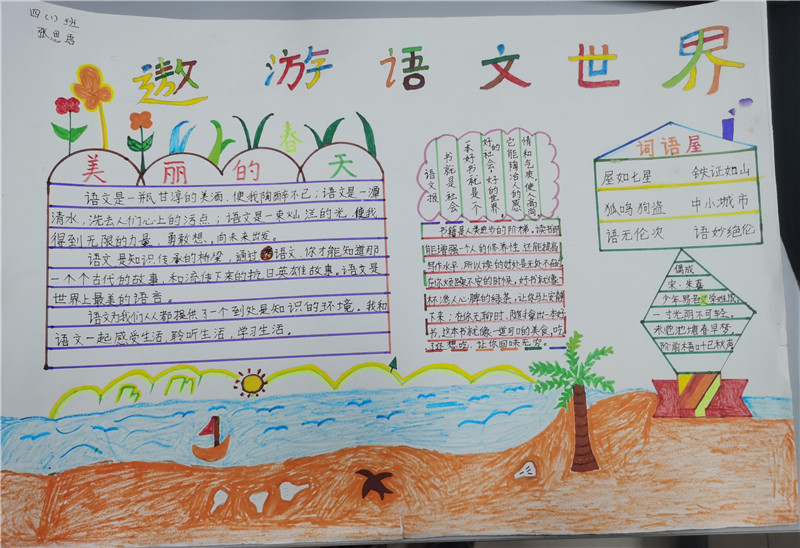 四(1)班
张思
遨游语文世界
美丽的春天
语文是一瓶甘淳的美酒,使我陶醉不已;语文是一潭
清水,洗去人们心上的污点;语文是一束灿烂的光,使我
得到无限的力量,勇敢想,向未来出发。
语文是知识传承的桥梁,通过语文,你才能知道那
一个个古代的故事,和流传下来的抗日英雄故事。语文是
世界上最美的语言。
语文为我们人人都提供了一个到处是知识的环境。我和
语文一起感受生活,聆听生活,学习生活。
情和气质,使人高尚
它能陶冶人的感
好的社会,好的世界
一本好书就是一个
书就是社会
语文报
书籍是人类进步的阶梯。读书
能增强一个人的修养性,还能提高
写作水平,所以读的好处是无处不在
在你烦躁不安的时候,好书就像一
杯沁人心脾的绿茶,让你马上安静
下来;在你无聊时,随手拿出一本好
书,这本书就像一道可口的美食,吃
了还想吃,让你回味无穷。
词语屋
屋如七星 铁证如山
狐鸣狗盗 中小城市
语无伦次 语妙绝伦
偶成
宋·朱熹
少年易老学难成,
一寸光阴不可轻。
未觉池塘春草梦,
阶前梧叶已秋声。